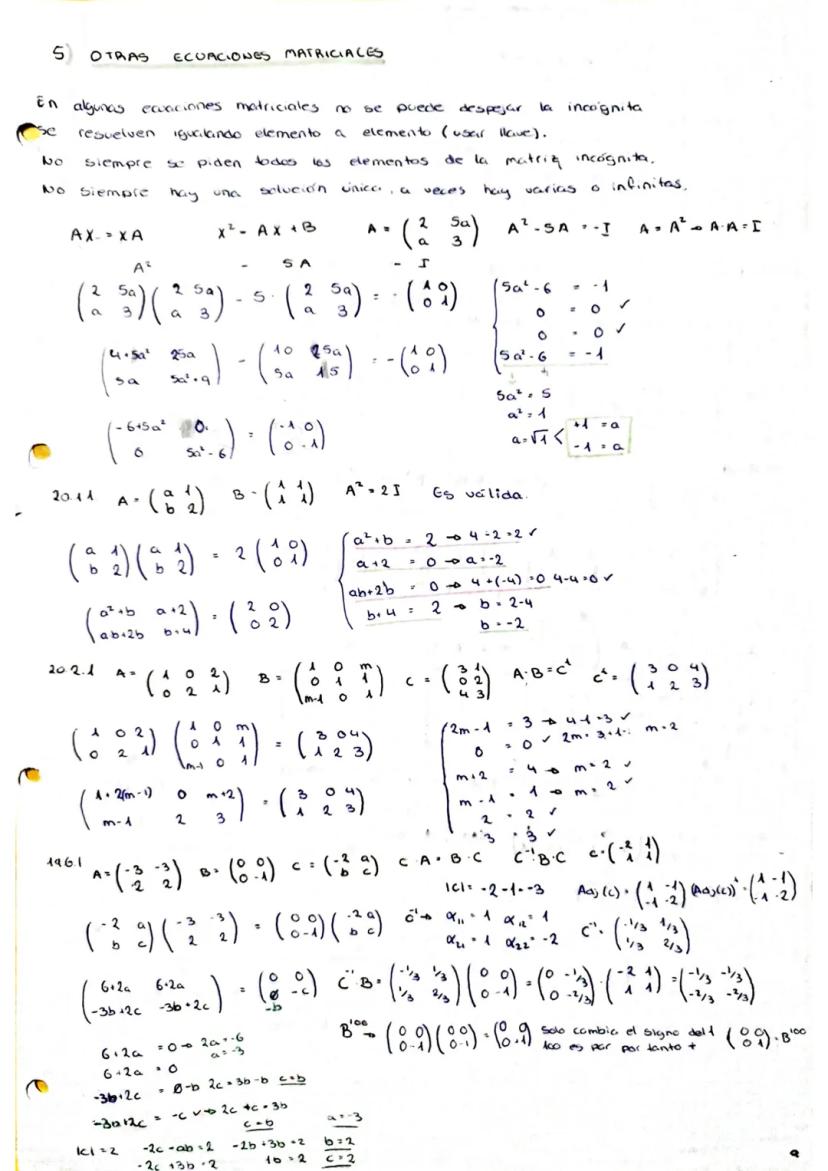 5) OTRAS ECUACIONES MATRICIALES
En algunas ecuaciones matriciales no se puede despejar la incógnita
se resuelven igualando elemento a elemento (usar llave).
No siempre se piden todos los elementos de la matriz incógnita.
No siempre hay una solución única, a veces hay varias o infinitas.
AX = XA X² - AX + B A = (2 5a / a 3) A² - 5A = -I A = A² → A·A = I
A² - 5A - I
(2 5a / a 3)(2 5a / a 3) - 5·(2 5a / a 3) = -(1 0 / 0 1)
5a² - 6 = -1
0 = 0 ✓
0 = 0 ✓
5a² - 6 = -1
(4+5a² 25a / 5a 5a²+9) - (10 25a / 5a 15) = -(1 0 / 0 1)
5a² = 5
a² = 1
a = √1 < +1 = a
-1 = a
(-6+5a² 0 / 0 5a²-6) = (-1 0 / 0 -1)
20.1.1 A = (a 1 / b 2) B = (1 1 / 1 1) A² = 2I Es válida.
(a 1 / b 2)(a 1 / b 2) = 2(1 0 / 0 1)
a² + b = 2 → 4 - 2 = 2 ✓
a + 2 = 0 → a = -2
ab + 2b = 0 → 4 + (-4) = 0 4-4=0 ✓
b + 4 = 2 → b = 2-4
b = -2
(a²+b a+2 / ab+2b b+4) = (2 0 / 0 2)
20.2.1 A = (1 0 2 / 0 2 1) B = (1 0 m / 0 1 1 / m-1 0 1) C = (3 1 / 0 2 / 4 3) A·B = Cᵗ Cᵗ = (3 0 4 / 1 2 3)
(1 0 2 / 0 2 1)(1 0 m / 0 1 1 / m-1 0 1) = (3 0 4 / 1 2 3)
2m - 1 = 3 → 4-1=3 ✓
0 = 0 ✓ 2m = 3+1 m=2
m+2 = 4 → m = 2 ✓
m - 1 = 1 → m = 2 ✓
2 = 2 ✓
3 = 3 ✓
(1+2(m-1) 0 m+2 / m-1 2 3) = (3 0 4 / 1 2 3)
19.6.1 A = (-3 -3 / 2 2) B = (0 0 / 0 -1) C = (-2 a / b c) C·A = B·C C⁻¹B·C C = (-2 1 / 1 1)
|C| = -2-1 = -3 Adj(C) = (1 -1 / -1 -2) (Adj(C))ᵗ = (1 -1 / -1 -2)
(-2 a / b c)(-3 -3 / 2 2) = (0 0 / 0 -1)(-2 a / b c)
C⁻¹ → α₁₁ = 1 α₁₂ = 1
α₂₁ = 1 α₂₂ = -2 C⁻¹ = (-1/3 1/3 / 1/3 2/3)
(6+2a 6+2a / -3b+2c -3b+2c) = (0 0 / 0 -c)
-b
C⁻¹·B = (-1/3 1/3 / 1/3 2/3)(0 0 / 0 -1) = (0 -1/3 / 0 -2/3)·(-2 1 / 1 1) = (-1/3 -1/3 / -2/3 -2/3)
B¹⁰⁰ → (0 0 / 0 -1)(0 0 / 0 -1) = (0 0 / 0 1) solo cambia el signo del 1
100 es par por tanto + (0 0 / 0 1) = B¹⁰⁰
6+2a = 0 → 2a = -6
a = -3
6+2a = 0
-3b+2c = 0-b 2c = 3b-b c=b
-3a+2c = -c ✓→ 2c +c = 3b
c = b
a = -3
|C| = 2 -2c-ab = 2 -2b+3b = 2 b = 2
-2c+3b = 2 1b = 2 c = 2
9